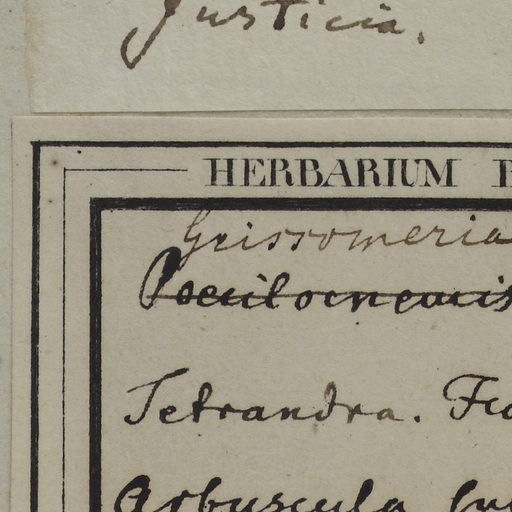 Justicia.
HERBARIUM
Geissomeria
Poecilocnemis
Tetrandra.
Arbuscula